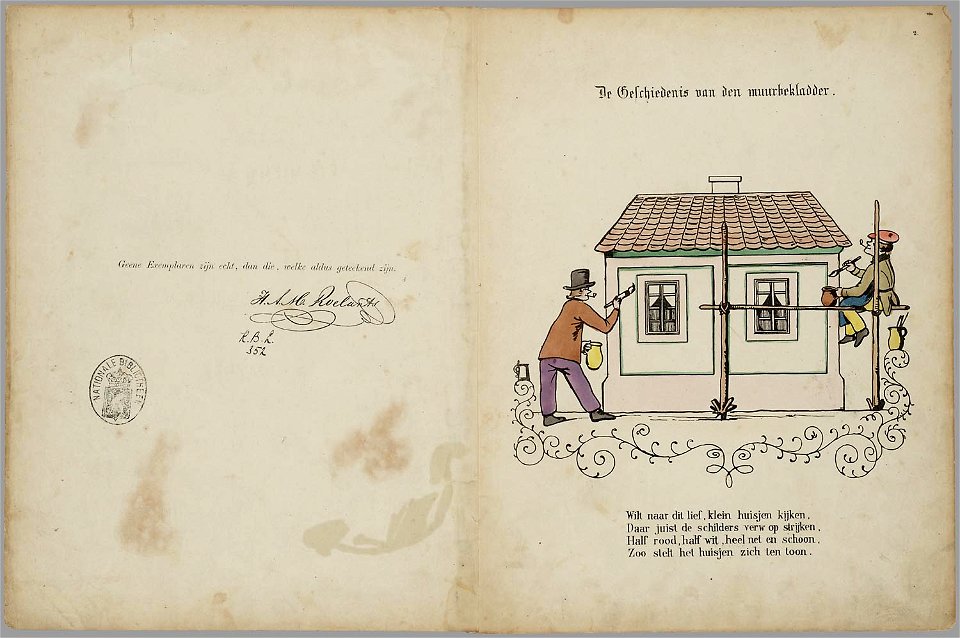 Geene Exemplaren zijn echt, dan die, welke aldus geteekend zijn.
H. A. M. Roelants
K. B. L.
352
NATIONALE BIBLIOTHEEK
2.
De Geschiedenis van den muurbekladder.
Wilt naar dit lief, klein huisjen kijken,
Daar juist de schilders verw op strijken,
Half rood, half wit, heel net en schoon,
Zoo stelt het huisjen zich ten toon.